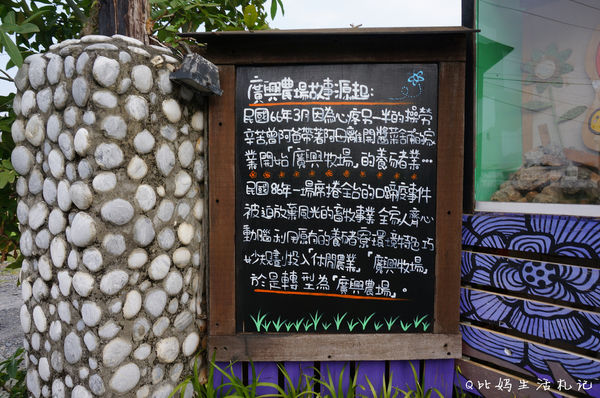 廣興農場故事源起:
民國66年3月因為心疼另一半的操勞
辛苦曾阿爸帶著阿母離開醬菜 家
業開始「廣興牧場」的養豬業…
民國86年一場席捲全台的口蹄疫事件
被迫放棄風光的畜牧事業全家人齊心
動腦利用原有的養豬環境 巧
妙規劃投入「休閒農業」「廣興牧場」
於是轉型為「廣興農場」。
Q比媽生活札記